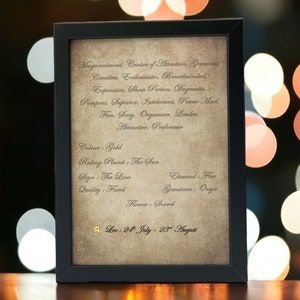 Magnanimous, Centre of Attraction, Generous
Creative, Enthusiastic, Broadminded,
Expansive, Show Person, Dogmatic,
Pompous, Superior, Intolerant, Power Mad,
Fun, Sexy, Organiser, Leader,
Attractive, Performer
Colour : Gold
Ruling Planet : The Sun
Sign : The Lion
Element : Fire
Quality : Fixed
Gemstone : Onyx
Flower : Sorrel
♌ Leo : 24th July - 23rd August